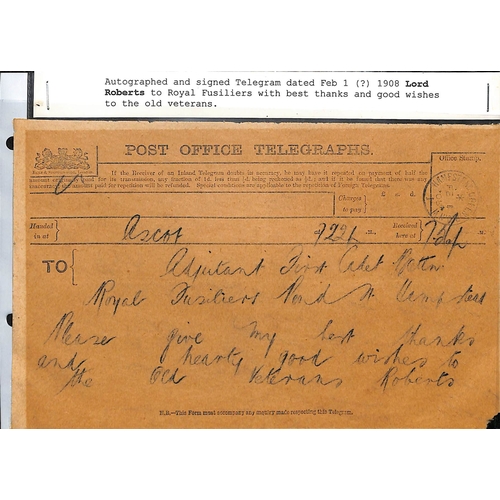 Autographed and signed Telegram dated Feb 1 (?) 1908 Lord
Roberts to Royal Fusiliers with best thanks and good wishes
to the old veterans.
POST OFFICE TELEGRAPHS.
If the Receiver of an Inland Telegram doubts its accuracy, he may have it repeated on payment of half the
amount originally paid for its transmission, any fraction of 1d. less than ½d. being reckoned as ½d.; and if it be found that there was any
inaccuracy, the amount paid for repetition will be refunded. Special conditions are applicable to the repetition of Foreign Telegrams.
Office Stamp.
Charges to pay
£ s. d.
Handed in at
Ascot
at 7.22 p M.,
Received here at
TO
Adjutant First Cadet Battn
Royal Fusiliers Pond St Hampstead
Please give my best thanks
and hearty good wishes to
the Old Veterans Roberts
N.B.—This Form must accompany any inquiry made respecting this Telegram.